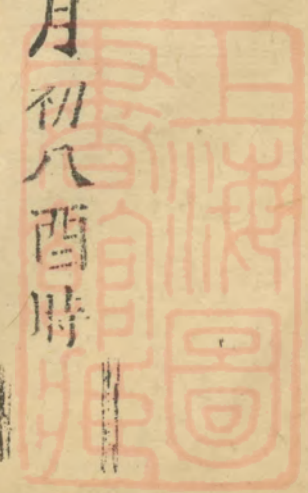 月初八酉時
上海圖
書館藏